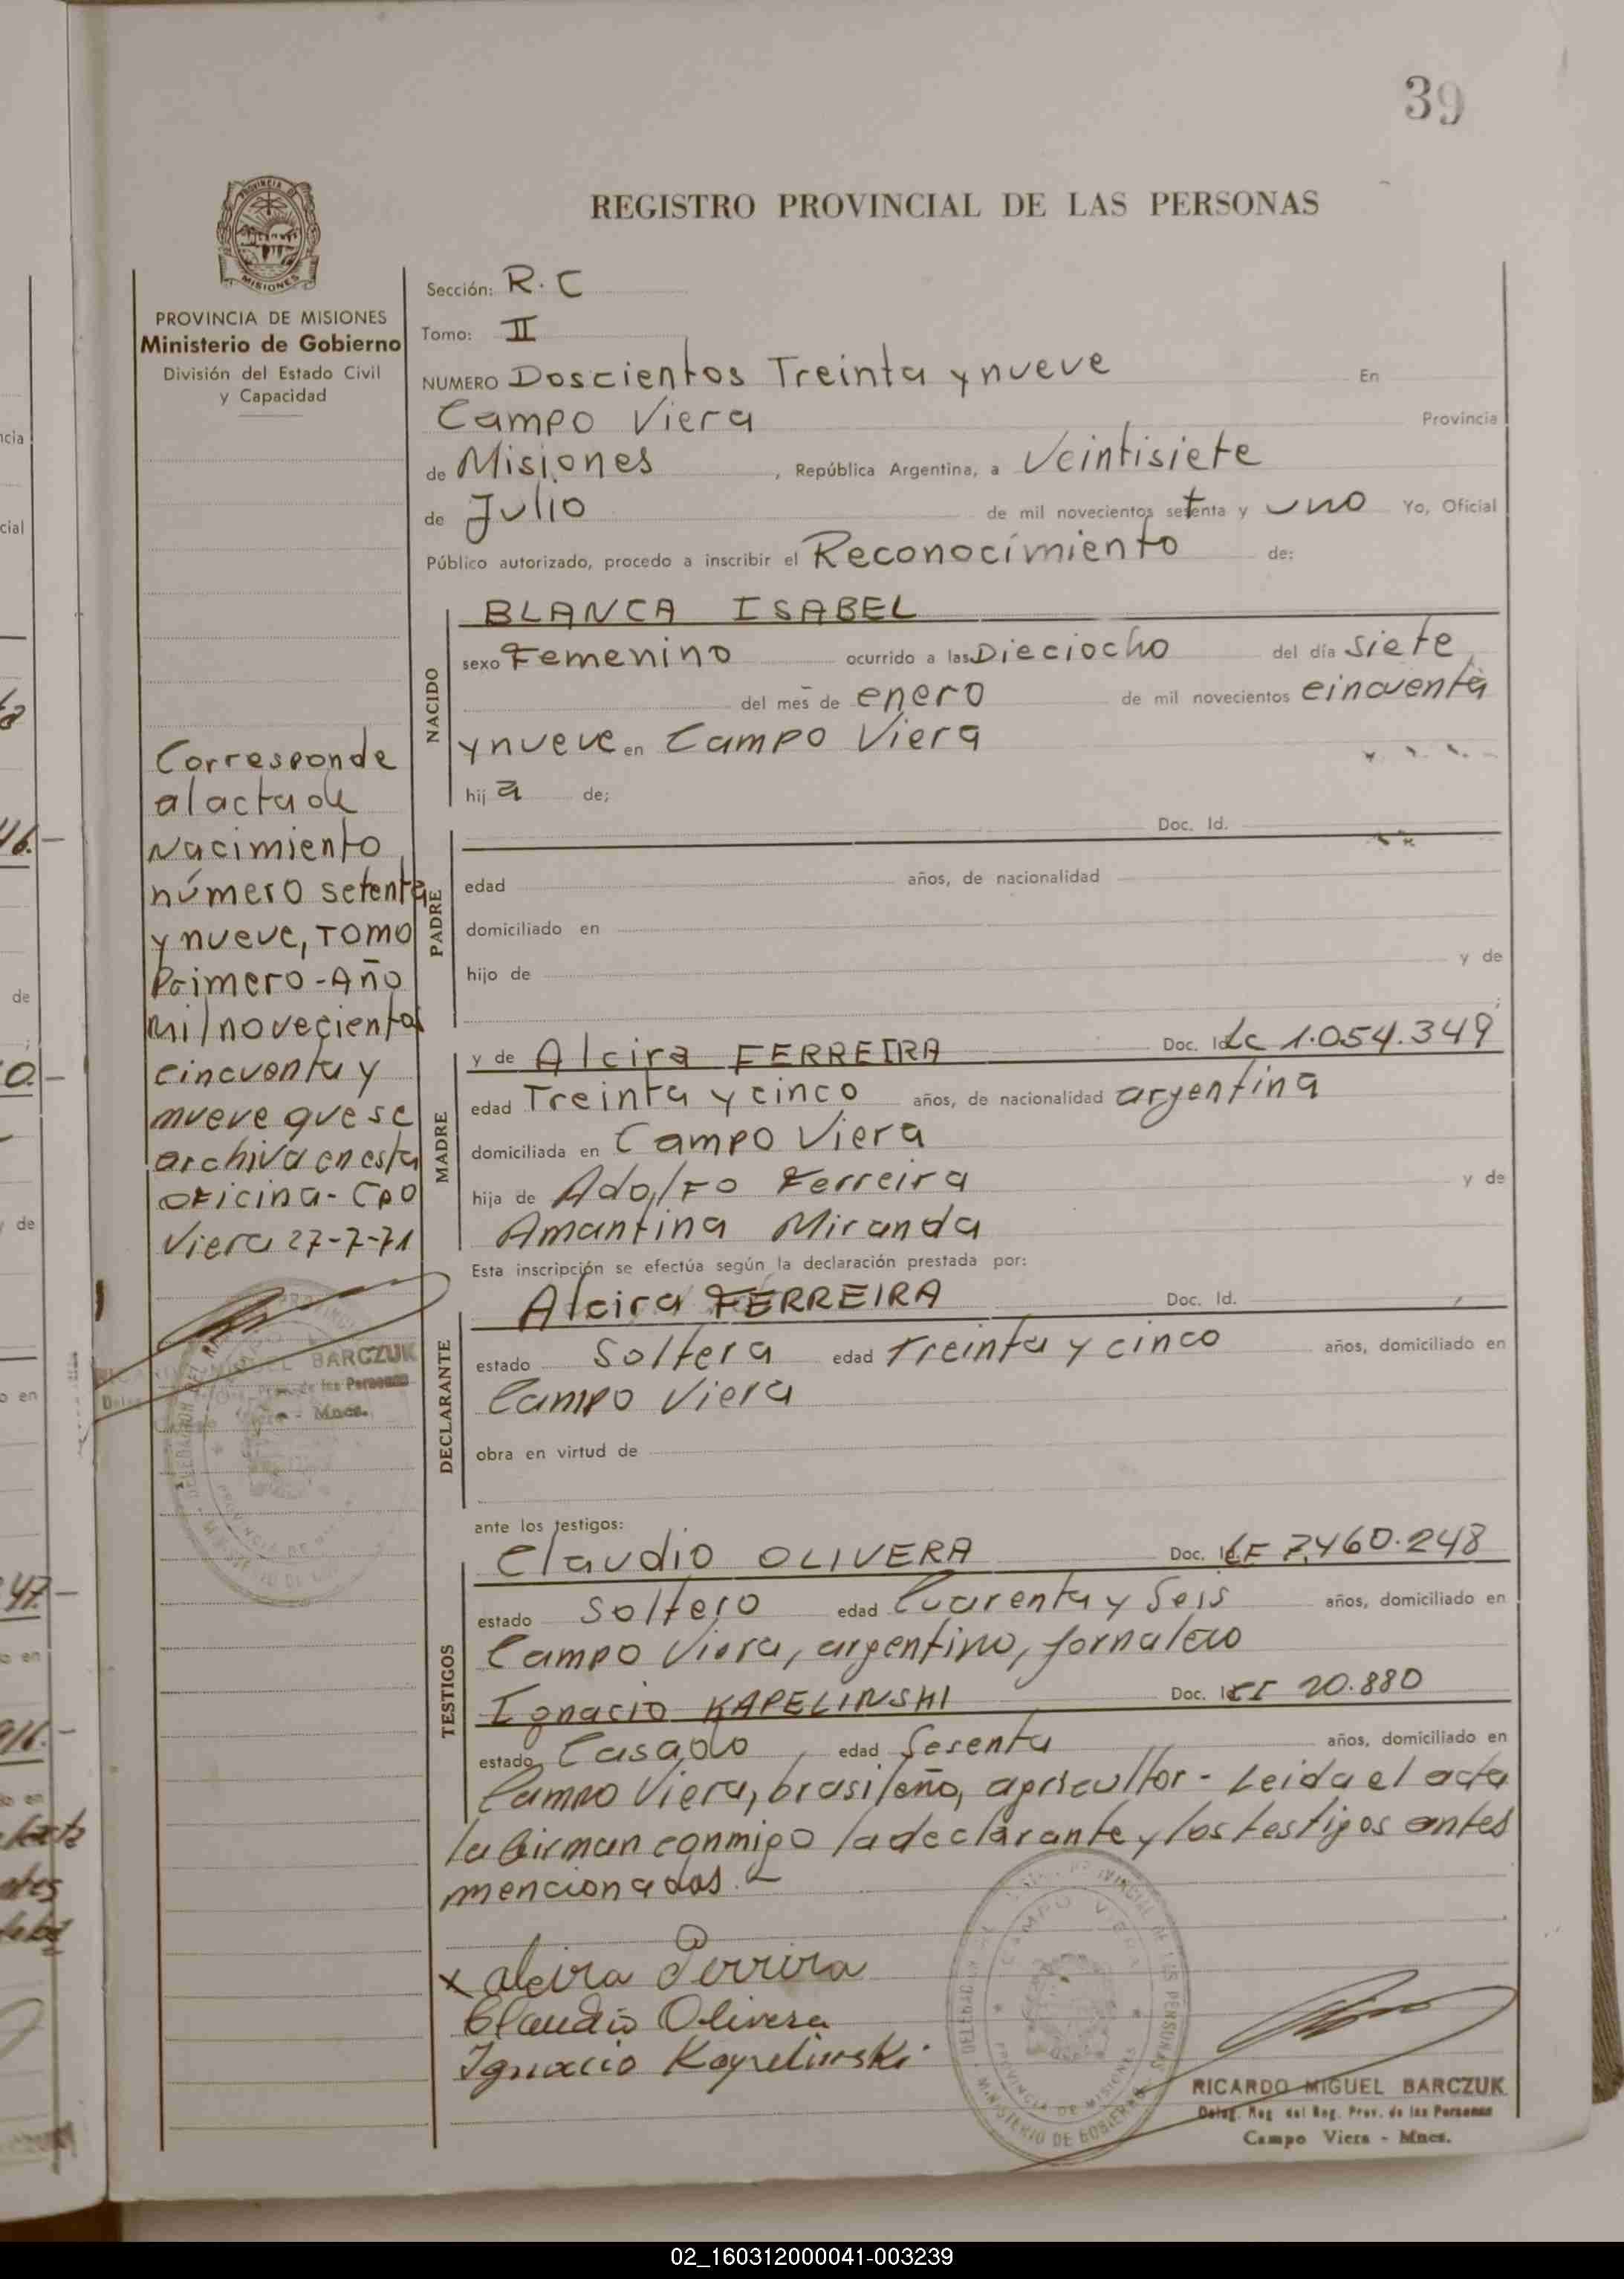 39
REGISTRO PROVINCIAL DE LAS PERSONAS
MISIONES
PROVINCIA DE MISIONES
Ministerio de Gobierno
División del Estado Civil
y Capacidad
Sección: R.C
Tomo: II
NUMERO Doscientos Treinta y nueve En
Campo Viera Provincia
de Misiones, República Argentina, a Veintisiete
de Julio de mil novecientos setenta y uno Yo, Oficial
Público autorizado, procedo a inscribir el Reconocimiento de:
NACIDO
BLANCA ISABEL
sexo Femenino ocurrido a las Dieciocho del día siete
del mes de enero de mil novecientos cincuenta
y nueve en Campo Viera
hija de;
Corresponde
al acta de
Nacimiento
número setenta
y nueve, Tomo
Primero-Año
mil novecientos
cincuenta y
nueve que se
archiva en esta
oficina- Cpo
Viera 27-7-71
MIGUEL BARCZUK
PADRE
Doc. Id.
edad años, de nacionalidad
domiciliado en
hijo de y de
MADRE
y de Alcira FERREIRA Doc. Id. Lc 1.054.349
edad Treinta y cinco años, de nacionalidad argentina
domiciliada en Campo Viera
hija de Adolfo Ferreira y de
Amantina Miranda
Esta inscripción se efectúa según la declaración prestada por:
DECLARANTE
Alcira FERREIRA Doc. Id.
estado Soltera edad Treinta y cinco años, domiciliado en
Campo Viera
obra en virtud de
ante los testigos:
TESTIGOS
Claudio OLIVERA Doc. Id. LE 7.460.248
estado Soltero edad Cuarenta y Seis años, domiciliado en
Campo Viera, argentino, jornalero
Ignacio KAPELINSKI Doc. Id. CI 20.880
estado Casado edad Sesenta años, domiciliado en
Campo Viera, brasileño, agricultor - Leida el acta
la firman conmigo la declarante y los testigos antes
mencionados.-
x Alcira Ferrira
Claudio Olivera
Ignacio Kapelinski
CAMPO VIERA
PROVINCIA DE MISIONES
MINISTERIO DE GOBIERNO
RICARDO MIGUEL BARCZUK
Deleg. Reg. del Reg. Prov. de las Personas
Campo Viera - Mnes.
02_160312000041-003239